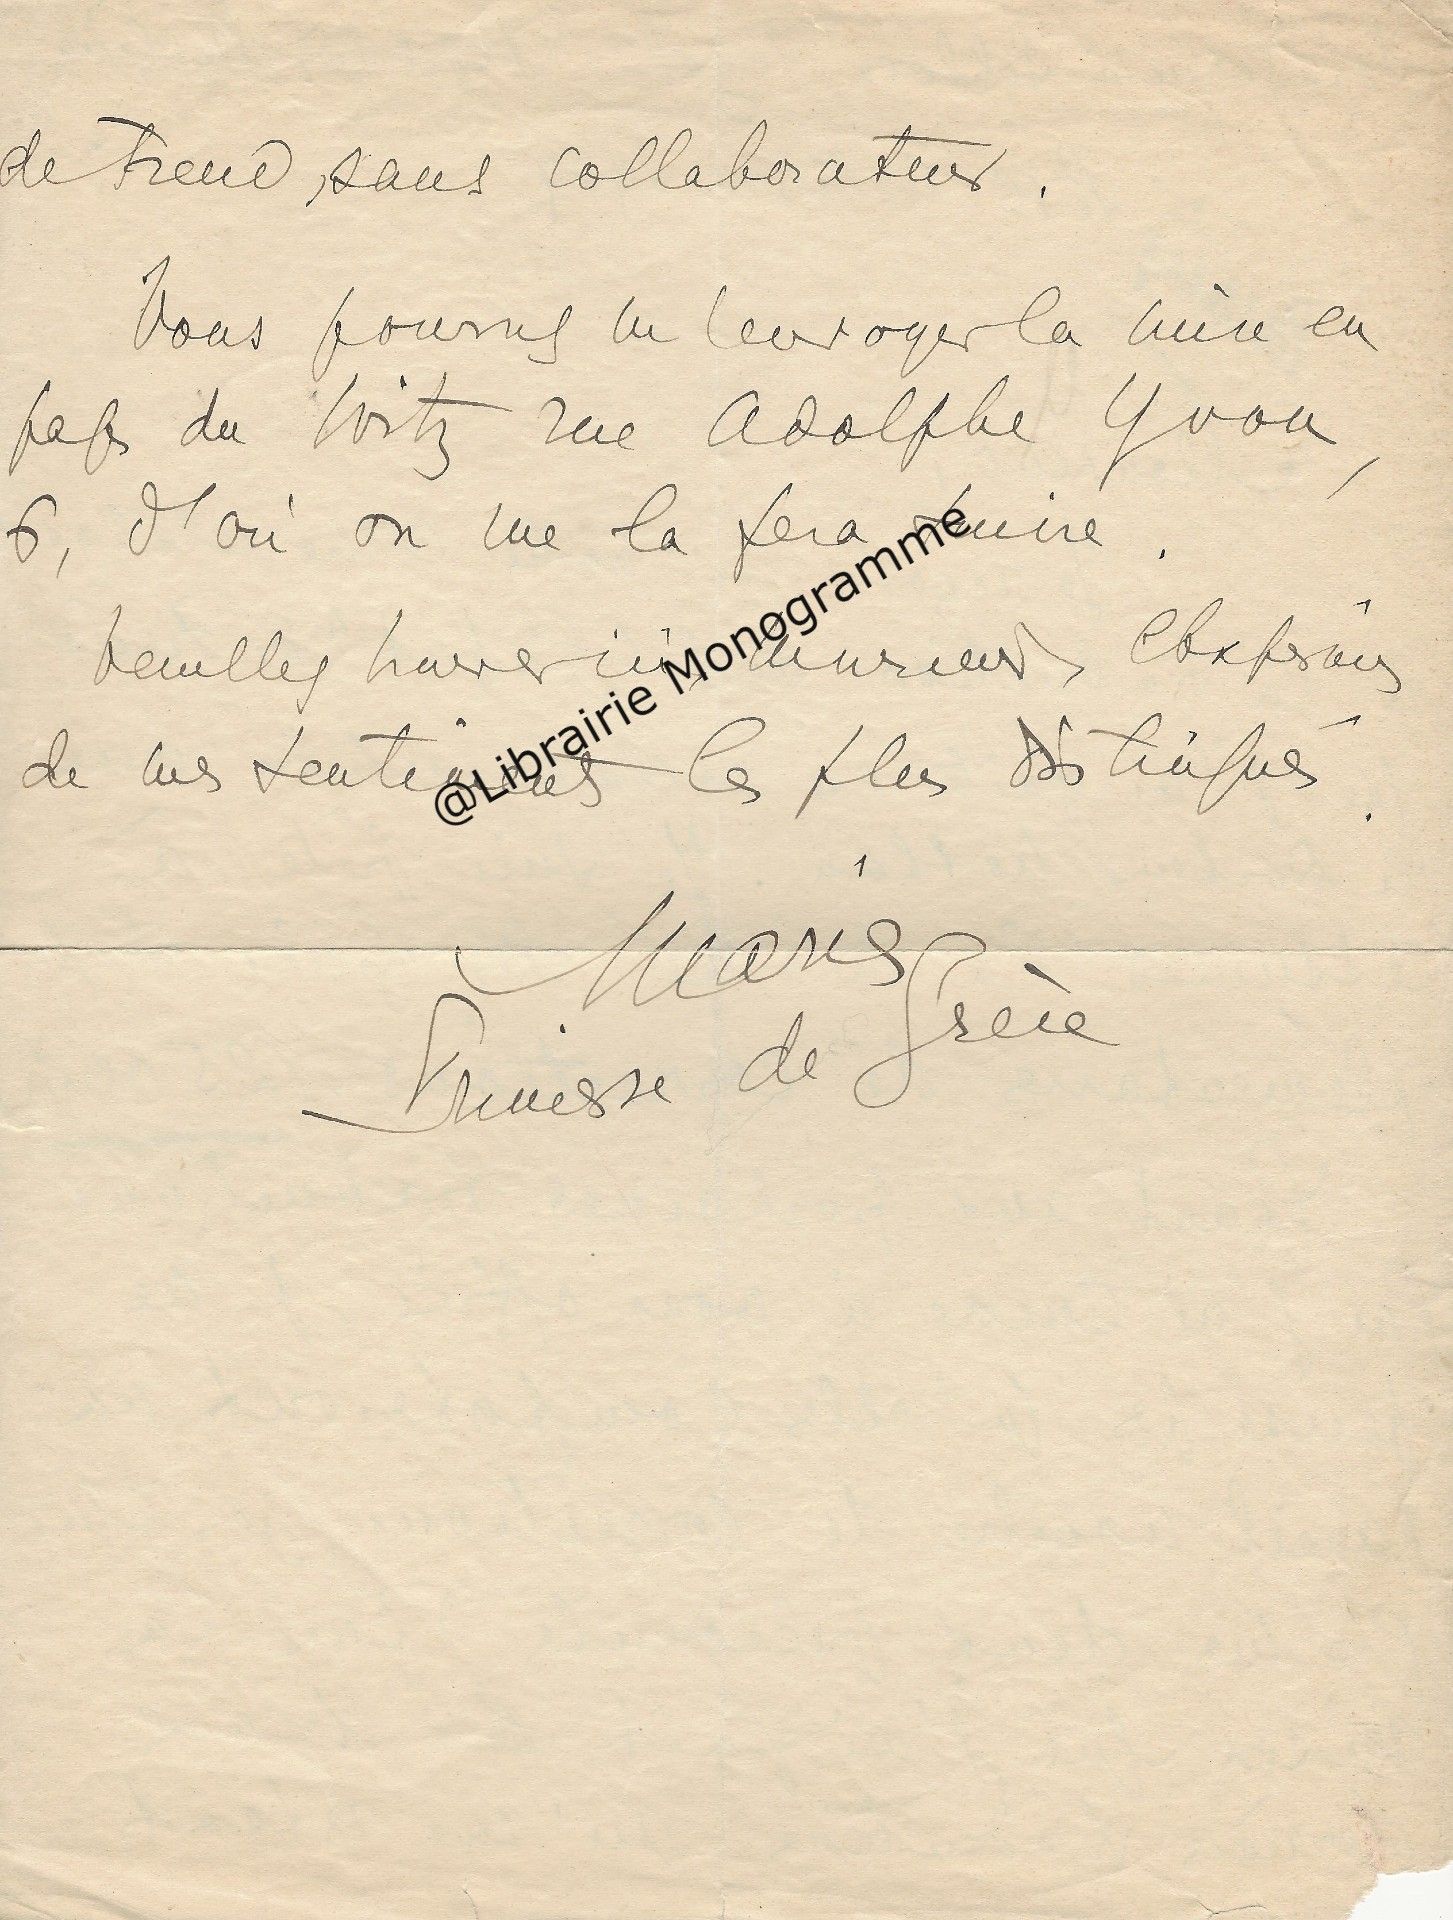 de Freud, sans collaborateur.
Vous pourrez m'envoyer la mise en
pages du Witz rue Adolphe Yvon,
6, d'où on me la fera suivre.
Veuillez trouver ici, Monsieur, l'expression
de mes sentiments les plus distingués.
Marie
Princesse de Grèce
@Librairie Monogramme